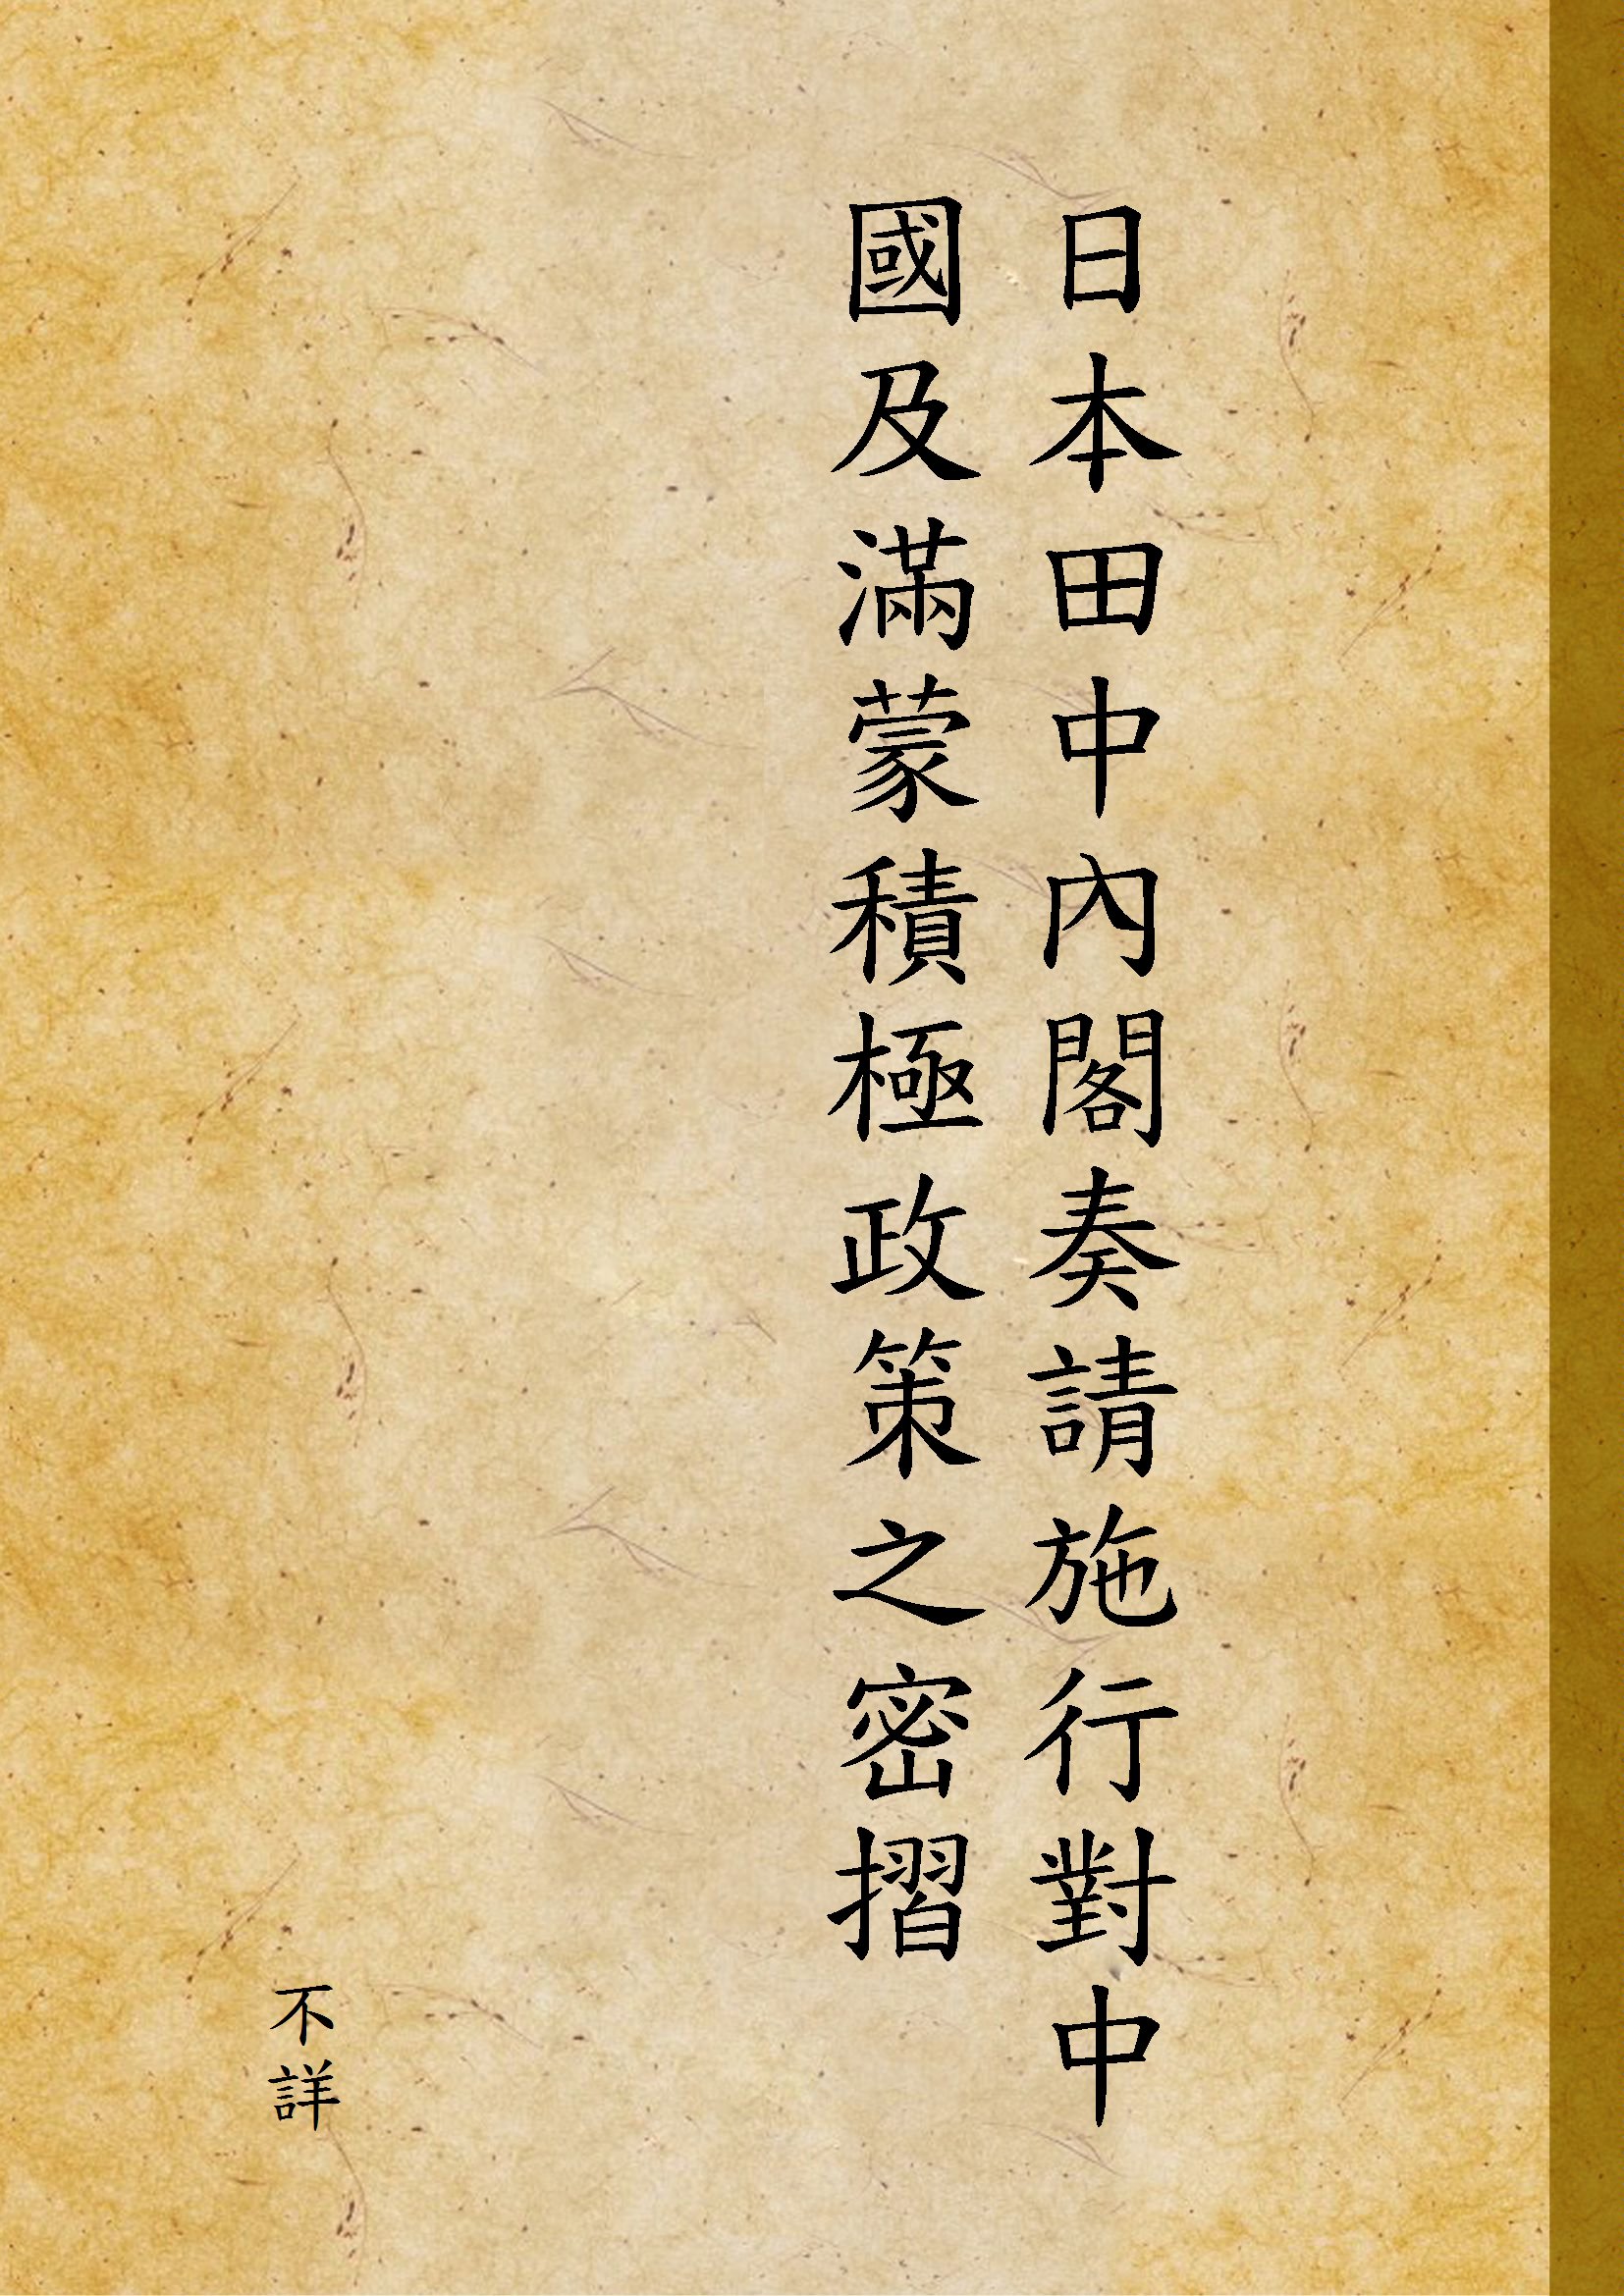 日本田中內閣奏請施行對中
國及滿蒙積極政策之密摺
不詳